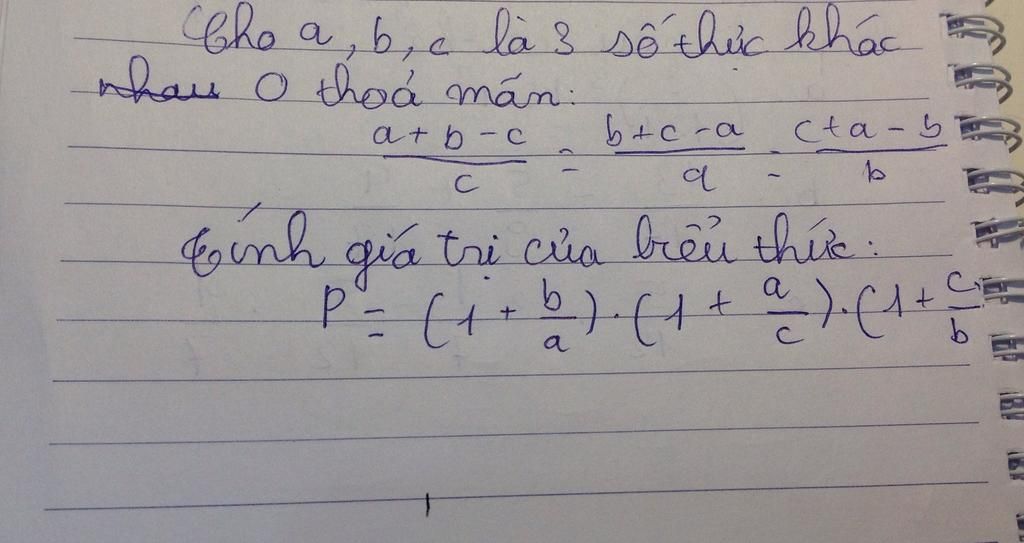 Cho a, b, c là 3 số thực khác
nhau 0 thoả mãn:
a + b - c / c = b + c - a / a = c + a - b / b
Tính giá trị của biểu thức:
P = (1 + b/a) . (1 + a/c) . (1 + c/b